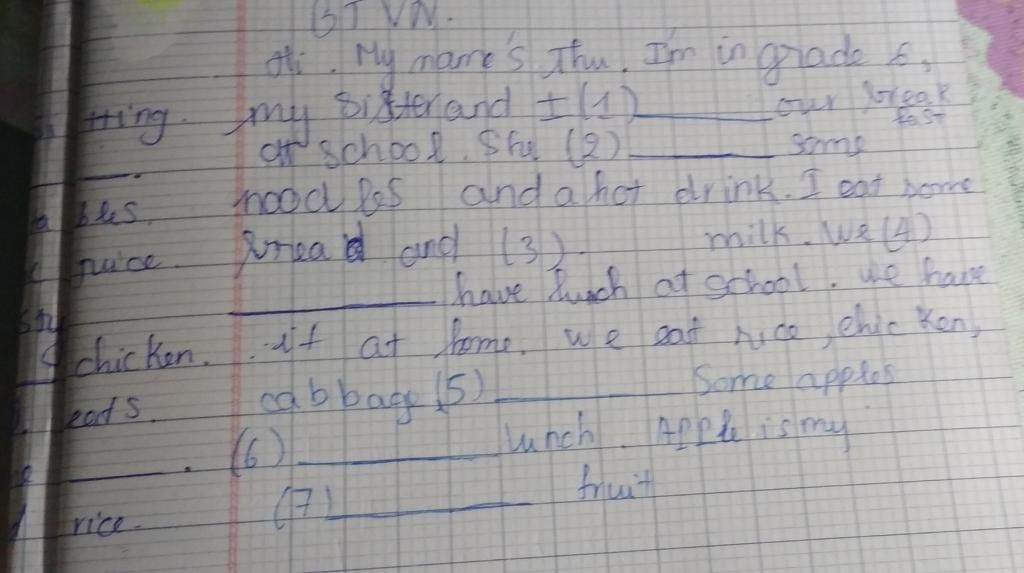 BTVN.
Hi. My name's Thu. I'm in grade 6,
tting. my sister and I (1) ______ our break fast
at school. She (2) ______ some
bles. noodles and a hot drink. I eat some
juice bread and (3) milk. We (4)
______ have lunch at school. we have
chicken. it at home. we eat rice, chicken,
eats. cabbage (5) ______ Some apples
______. (6) ______ lunch. Apple is my
rice. (7) ______ fruit